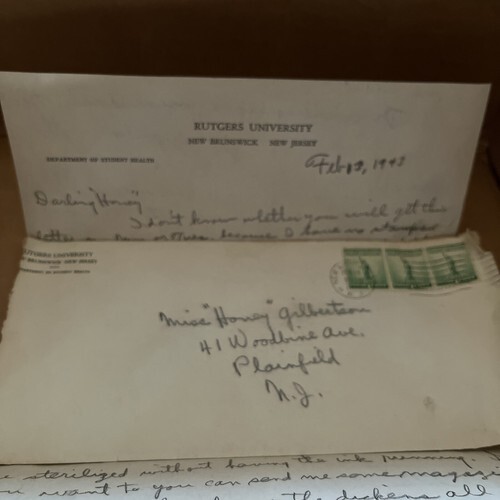 RUTGERS UNIVERSITY
NEW BRUNSWICK NEW JERSEY
DEPARTMENT OF STUDENT HEALTH
Feb 12, 1943
Darling "Honey"
I don't know whether you will get this
letter or not, because I have no stamps
RUTGERS UNIVERSITY
NEW BRUNSWICK NEW JERSEY
DEPARTMENT OF STUDENT HEALTH
Miss "Honey" Gilbertson
41 Woodbine Ave.
Plainfield
N.J.
sterilized without having the ink running.
want to you can send me some magazi
the dickens all